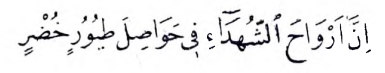 اِنَّ اَرْوَاحَ ٱلشُّهَدَٓاءِ فِى حَوَاصِلَ طُيُورٍ خُضْرٍ